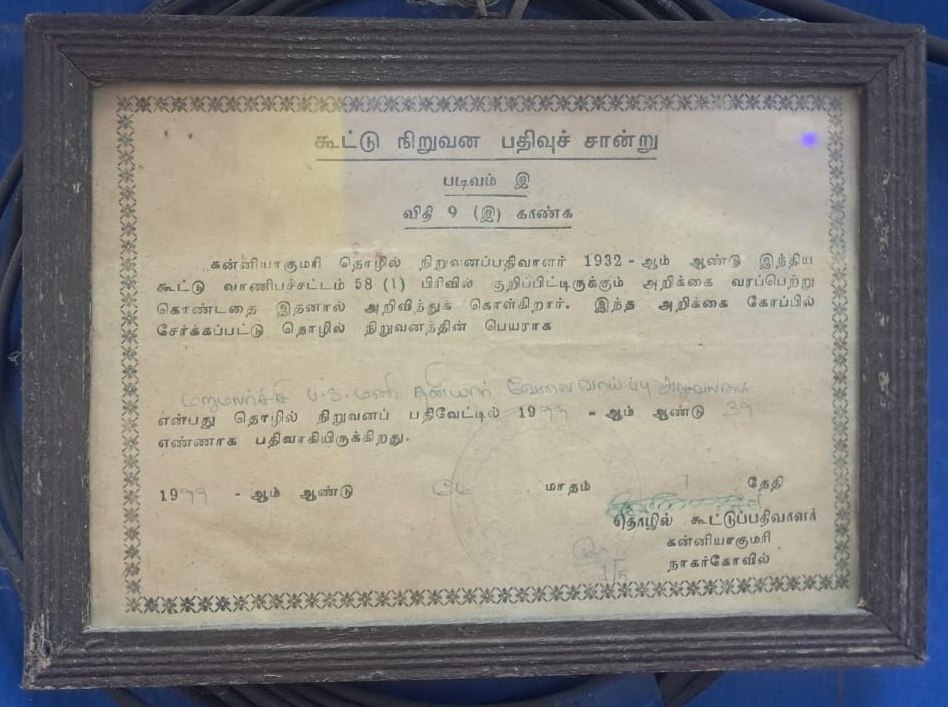 கூட்டு நிறுவன பதிவுச் சான்று
படிவம் இ
விதி 9 (இ) காண்க
கன்னியாகுமரி தொழில் நிறுவனப்பதிவாளர் 1932 - ஆம் ஆண்டு இந்திய
கூட்டு வாணிபச்சட்டம் 58 (1) பிரிவில் குறிப்பிட்டிருக்கும் அறிக்கை வரப்பெற்று
கொண்டதை இதனால் அறிவித்துக் கொள்கிறார். இந்த அறிக்கை கோப்பில்
சேர்க்கப்பட்டு தொழில் நிறுவனத்தின் பெயராக
மறுமலர்ச்சி ப.S.மணி தனியார் வேலைவாய்ப்பு அலுவலகம்
என்பது தொழில் நிறுவனப் பதிவேட்டில் 1999 - ஆம் ஆண்டு 39
எண்ணாக பதிவாகியிருக்கிறது.
1999 - ஆம் ஆண்டு மே மாதம் 7 தேதி
தொழில் கூட்டுப்பதிவாளர்
கன்னியாகுமரி
நாகர்கோவில்